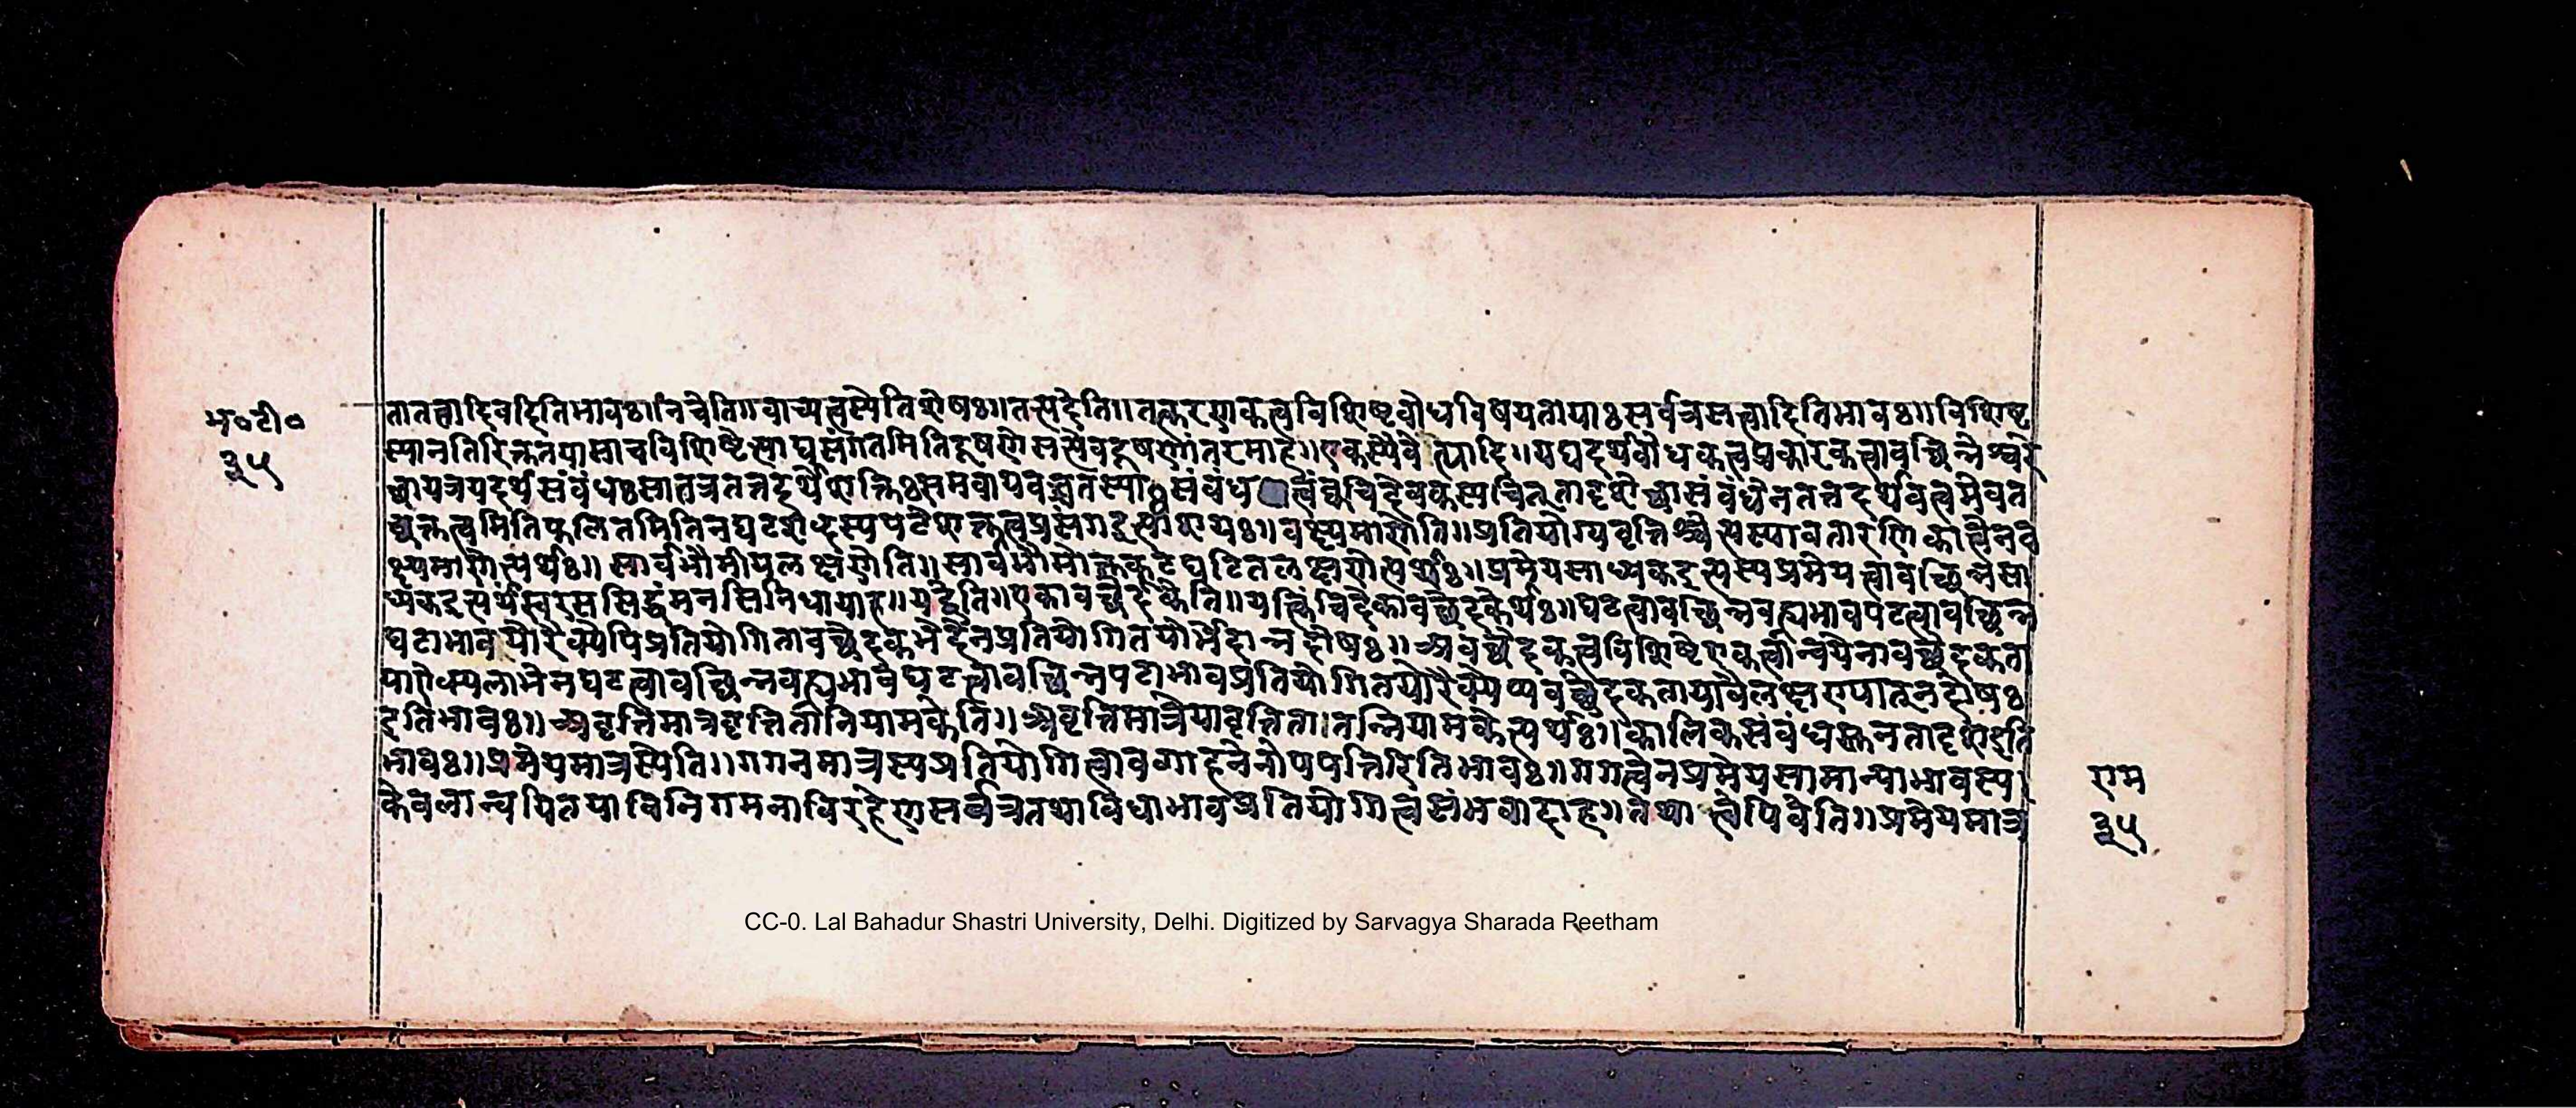 भ०टी०
३५
तातत्वादिवदितिभावः॥नचेति॥वाच्यत्वस्येतिशेषः॥तत्पदेति॥तत्करणकत्वविशिष्टबोधविषयतायाःसर्वत्रसत्त्वादितिभावः॥विशिष्ट
स्यानतिरिक्ततयासाचविशिष्टेलाघुसंगतमितिदूषणेसत्येवदूषणांतरमाह॥एकस्यैवेत्यादि॥यद्यदर्थबोधकत्वप्रकारकत्वावच्छिन्नेश्वरे
च्छायत्रयदर्थसंबंधःसातत्रतत्तदर्थेशक्तिःसमवायवच्चतस्याःसंबंधत्वंक्वचिदेवकस्यचित्तादृशेच्छासंबंधेनतत्तदर्थवत्वमेवत
च्छक्तत्वमितिफलितमितिनघटशब्दस्यपटेशक्तत्वप्रसंगइत्याशयः॥वक्ष्यमाणेति॥प्रतियोग्यवृत्तिश्चेत्यस्यावतारणिकात्वेनव
क्ष्यमाणेत्यर्थः॥सार्वभौमीयलक्षणेति॥सार्वभौमोक्तकूटघटितलक्षणेत्यर्थः॥प्रमेयसाध्यकइत्यस्यप्रमेयत्वावच्छिन्नसा
ध्यकइत्यर्थंस्वरससिद्धंमनसिनिधायाह॥यद्वेति॥एकावच्छेदकेति॥यत्किंचिदेकावच्छेदकेत्यर्थः॥घटत्वावच्छिन्नवह्यभावपटत्वावच्छिन्न
घटाभावयोरैक्येपिप्रतियोगितावच्छेदकभेदेनप्रतियोगितयोर्भेदान्नदोषः॥अवच्छेदकत्वविशिष्टेएकत्वान्वयेनावच्छेदकता
याऐक्यलाभेनघटत्वावच्छिन्नवह्यभावघटत्वावच्छिन्नपटाभावप्रतियोगितयोरैक्येप्यवच्छेदकतायावैलक्षण्यातनदोषः
इतिभावः॥अवृत्तिमात्रवृत्तितानियामकेति॥अवृत्तिमात्रेयावृत्तिता।तन्नियामकेत्यर्थः॥कालिकसंबंधस्तुनतादृशइति
भावः॥प्रमेयमात्रस्येति॥गगनमात्रस्यप्रतियोगित्वावगाहनेनोपपत्तिरितिभावः॥गगत्वेनप्रमेयसामान्याभावस्य।
केवलान्वयितयाविनिगमनाविरहेणसर्वत्रतथाविधाभावप्रतियोगित्वसंभवादाह॥तथात्वेपिवेति॥प्रमेयमात्र
राम
३५
CC-0. Lal Bahadur Shastri University, Delhi. Digitized by Sarvagya Sharada Reetham